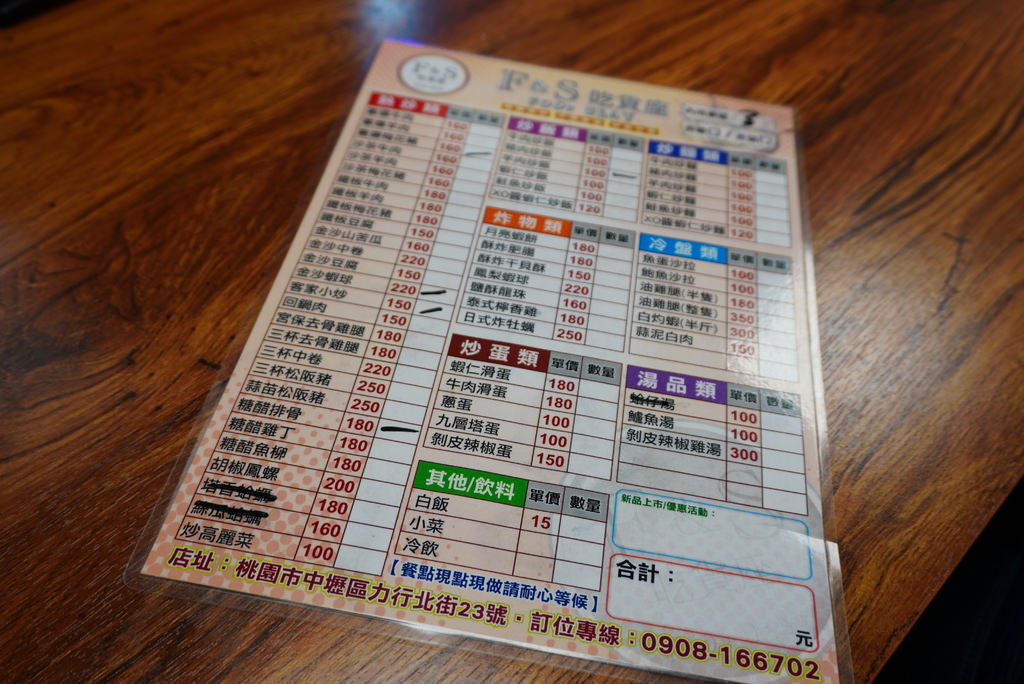 F&S
F&S 吃貨座
3
熱炒類
160
160
160
沙茶牛肉 160
沙茶羊肉 160
沙茶梅花豬 160
鐵板牛肉 180
鐵板羊肉 180
鐵板梅花豬 180
鐵板豆腐 150
金沙山苦瓜 160
金沙中卷 220
金沙豆腐 150
金沙蝦球 220
客家小炒 150
回鍋肉 150
宮保去骨雞腿 180
三杯去骨雞腿 180
三杯中卷 220
三杯松阪豬 250
蒜苗松阪豬 250
糖醋排骨 180
糖醋雞丁 180
糖醋魚柳 180
胡椒鳳螺 200
塔香蛤蠣 180
絲瓜蛤蠣 160
炒高麗菜 100
炒飯類 單價 數量
牛肉炒飯 100
豬肉炒飯 100
羊肉炒飯 100
蝦仁炒飯 100
鮭魚炒飯 100
XO醬蝦仁炒飯 120
炒麵類 單價 數量
牛肉炒麵 100
豬肉炒麵 100
羊肉炒麵 100
蝦仁炒麵 100
鮭魚炒麵 100
XO醬蝦仁炒麵 120
炸物類 單價 數量
月亮蝦餅 180
酥炸肥腸 180
酥炸干貝酥 150
鳳梨蝦球 220
鹽酥龍珠 160
泰式檸香雞 180
日式炸牡蠣 250
冷盤類 單價 數量
魚蛋沙拉 100
鮑魚沙拉 100
油雞腿(半隻) 180
油雞腿(整隻) 350
白灼蝦(半斤) 300
蒜泥白肉 150
炒蛋類 單價 數量
蝦仁滑蛋 180
牛肉滑蛋 180
蔥蛋 100
九層塔蛋 100
剝皮辣椒蛋 150
湯品類 單價 數量
蛤仔湯 100
鱸魚湯 100
剝皮辣椒雞湯 300
其他/飲料 單價 數量
白飯 15
小菜
冷飲
新品上市/優惠活動：
合計：
元
【餐點現點現做請耐心等候】
店址：桃園市中壢區力行北街23號·訂位專線：0908-166702